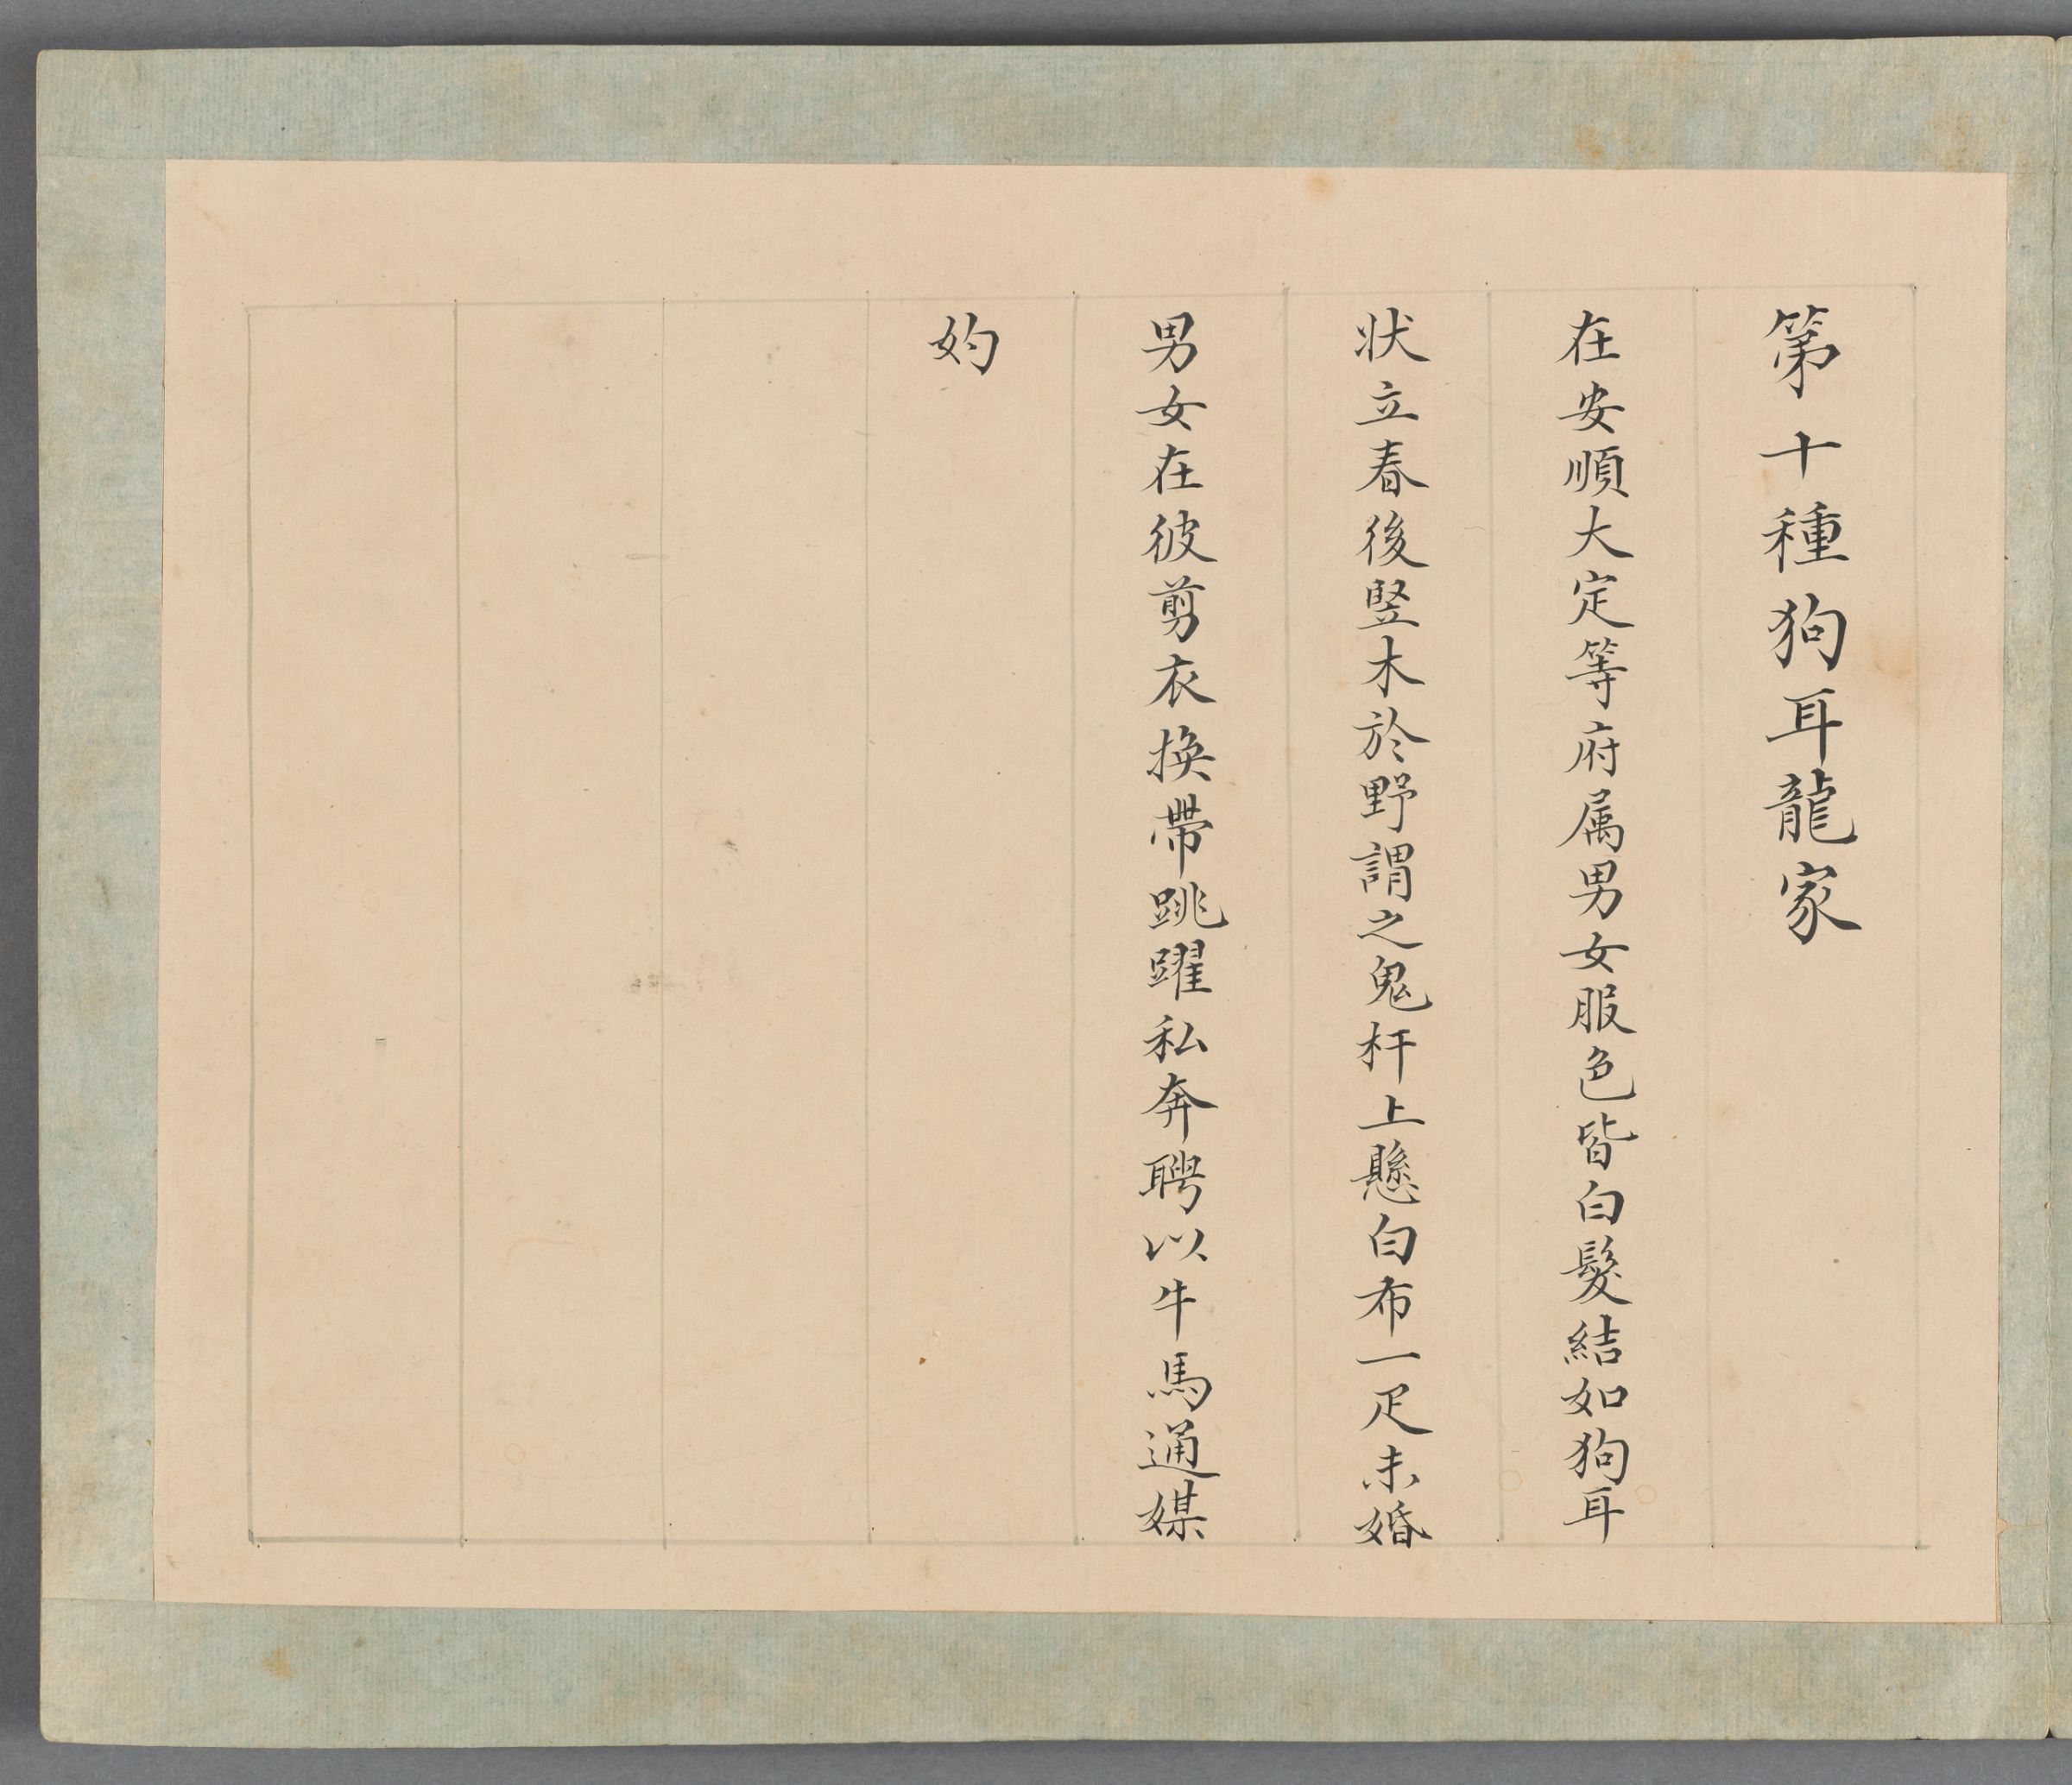 第十種狗耳龍家
在安順大定等府属男女服色皆白髮結如狗耳
狀立春後竪木於野謂之鬼杆上懸白布一疋未婚
男女在彼剪衣換帶跳躍私奔聘以牛馬通媒
妁